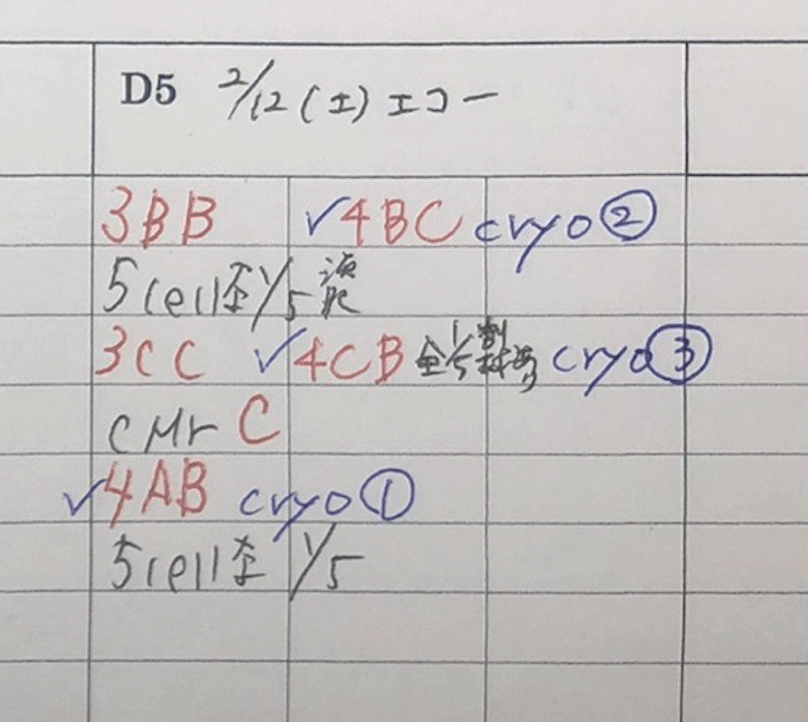 D5 2/12 (土) エコー
3BB ✓4BC cryo②
5cell 1/5
3CC ✓4CB 全 1/5 cryo③
cMr C
✓4AB cryo①
5cell 1/5